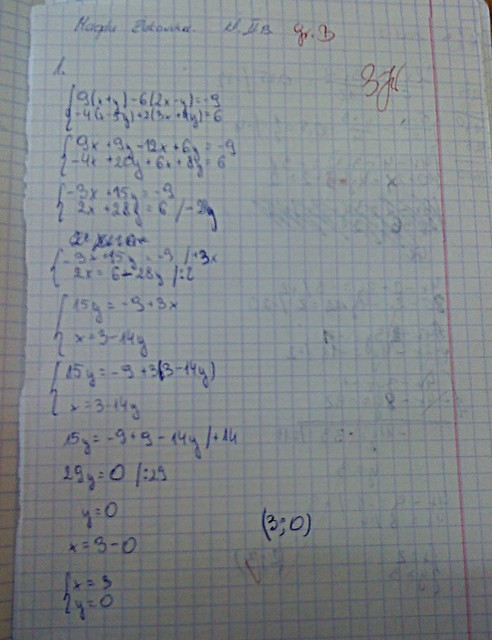 gr. B
1.
9(x+y)-6(2x-y)=-9
-4(x-5y)+2(3x+4y)=6
9x+9y-12x+6y=-9
-4x+20y+6x+8y=6
-3x+15y=-9
2x+28y=6 /-28y
-3x+15y=-9 /+3x
2x=6-28y /:2
15y=-9+3x
x=3-14y
15y=-9+3(3-14y)
x=3-14y
15y=-9+9-14y /+14
29y=0 /:29
y=0
(3;0)
x=3-0
x=3
y=0